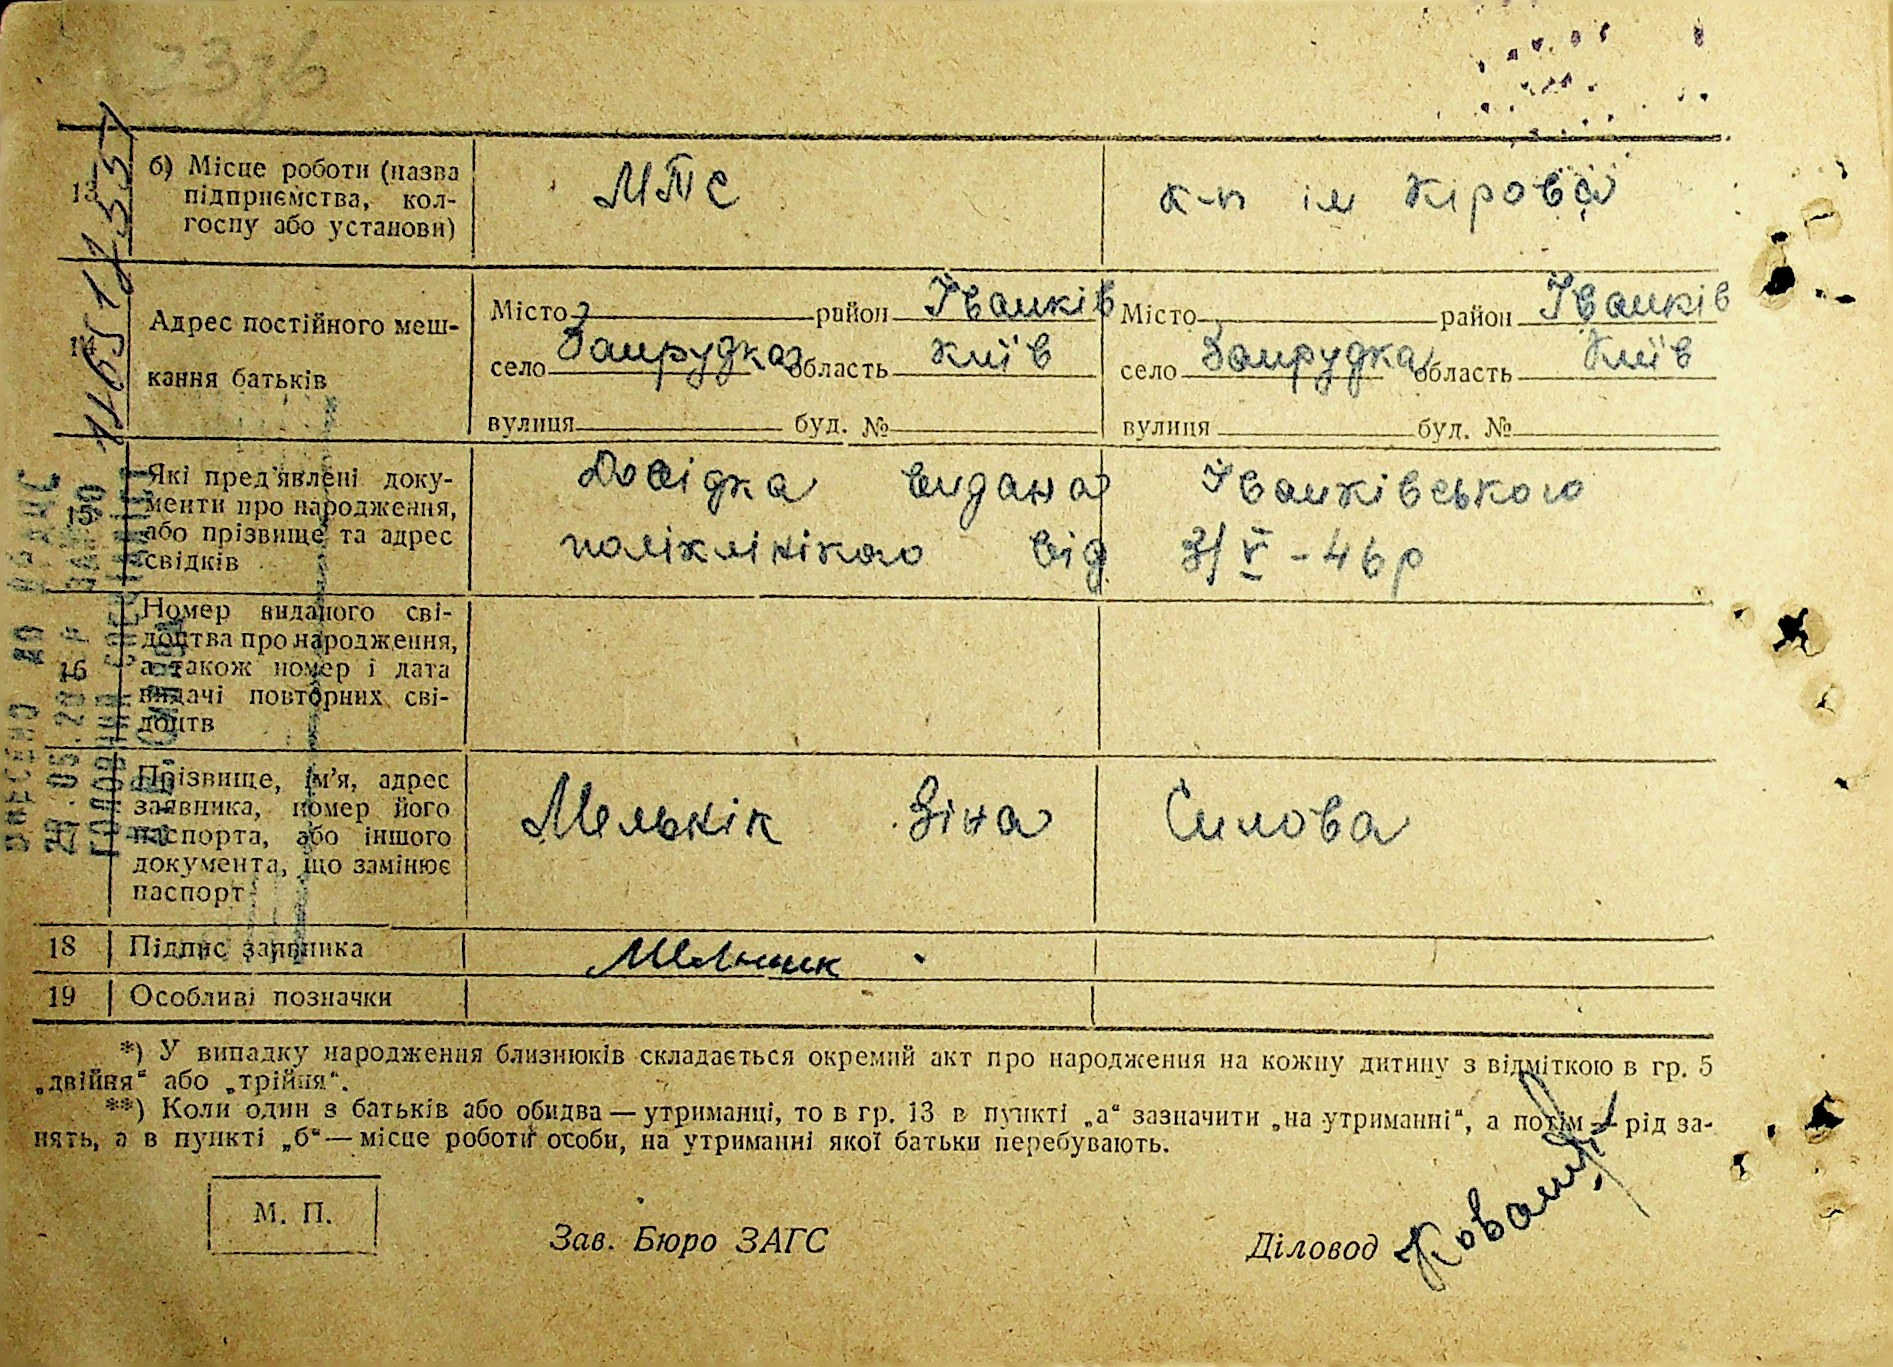 13
б) Місце роботи (назва
підприємства, кол-
госпу або установи)
МТС
к-п ім Кірова
14
Адрес постійного меш-
кання батьків
Місто район Іванків
село Замрудка область Київ
вулиця буд. №
Місто район Іванків
село Замрудка область Київ
вулиця буд. №
15
Які пред'явлені доку-
менти про народження,
або прізвище та адрес
свідків
Довідка видана Іванківською
поліклінікою від 3/V-46р
16
Номер виданого сві-
доцтва про народження,
а також номер і дата
видачі повторних сві-
доцтв
17
Прізвище, ім'я, адрес
заявника, номер його
паспорта, або іншого
документа, що замінює
паспорт
Мельнік Зіна Силова
18 Підпис заявника
Мельник
19 Особливі позначки
*) У випадку народження близнюків складається окремий акт про народження на кожну дитину з відміткою в гр. 5
„двійня“ або „трійня“.
**) Коли один з батьків або обидва — утриманці, то в гр. 13 в пункті „а“ зазначити „на утриманні“, а потім — рід за-
нять, а в пункті „б“ — місце роботи особи, на утриманні якої батьки перебувають.
М. П.
Зав. Бюро ЗАГС
Діловод